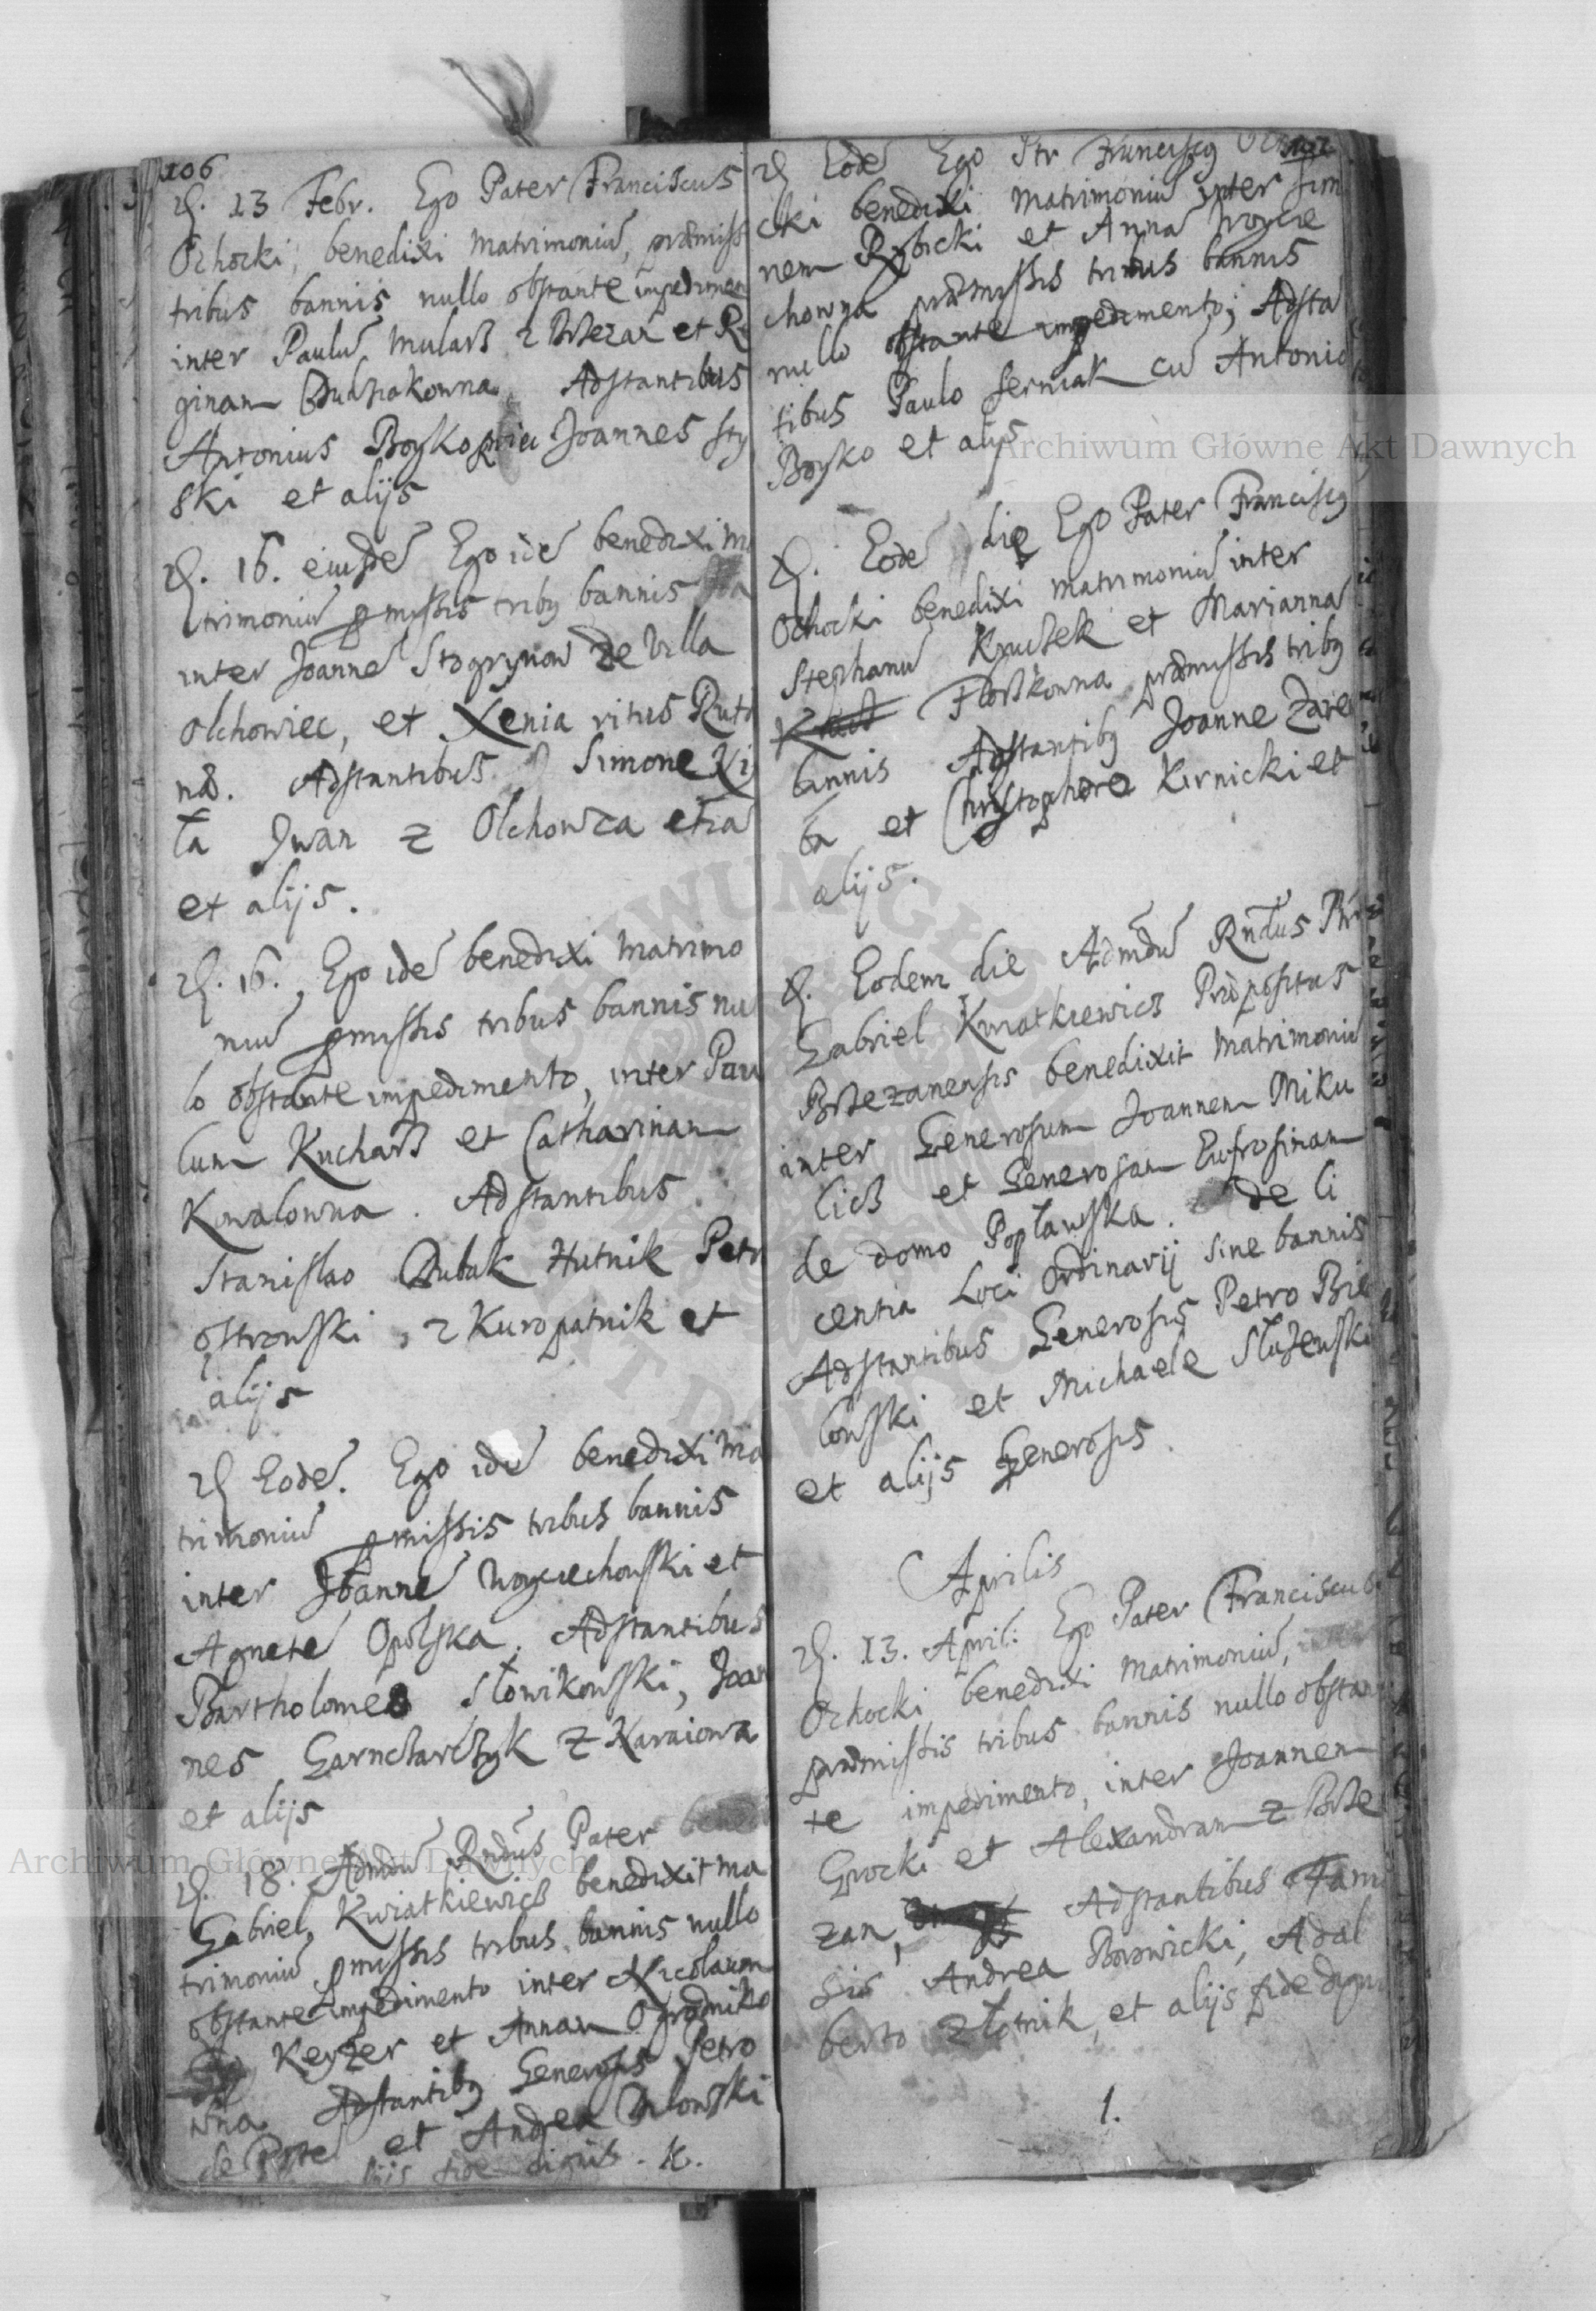 106
D. 13 Febr. Ego Pater Franciscus
Ochocki, benedixi Matrimoniū, præmiss
tribus bannis nullo obstante impedimen
inter Paulū Mularz z Brzezan et Re
ginam Adstantibus
Antonius Boyko Joannes
ski et alijs
D. 16. eiusdē Ego idē benedixi Ma
trimoniū pmissis tribq bannis
inter Joannē Stogrynow de Villa
Olchowiec, et Xenia ritus Ruth
næ. Adstantibus Simone
ta Jwan z Olchowca
et alijs.
D. 16. Ego idē benedixi Matrimo
niū pmissis tribus bannis nul
lo obstante impedimento, inter Pau
lum Kucharz et Catharinam
Kowalowna. Adstantibus
Stanislao Dubak Hutnik Petr
Ostrowski, z Kuropatnik et
alijs
D Eodē. Ego idē benedixi Ma
trimoniū pmissis tribus bannis
inter Joannē Woyciechowski et
Agnetē Opolska. Adstantibus
Bartholomeo Słowikowski, Joan
nes Garncharczyk z Karaiowa
et alijs
D. 18. Admdū Rndus Pater
Gabriel Kwiatkiewicz benedixit Ma
trimoniū pmissis tribus bannis nullo
obstante impedimento inter Nicolaum
Keyzer et Annam Ogrodniko
wna Adstantibq Generosis Petro
de et Andrea
alijs fide dignis.
D Eodē Ego Ptr Franciscq
cki benedixi Matrimoniū inter Sim
nem Rybicki et Anna Woycie
chowna præmissis tribus bannis
nullo obstante impedimento; Adsta
tibus Paulo Serniak cū Antonio
Boyko et alijs
D. Eodē die Ego Pater Franciscq
Ochocki benedixi matrimoniū inter
Stephanū Kruczek et Marianna
Floszkowna præmissis tribq
bannis Adstantibq Joanne Zare
ba et Christophoro Kirnicki et
alijs.
D. Eodem die Admdū Rndus Ptr
Gabriel Kwiatkiewicz Præpositus
Brzezanensis benedixit Matrimoniū
inter Generosum Joannem Miku
licz et Generosam Eufrosinam
de domo Popławska. de li
centia Loci Ordinarij sine bannis
Adstantibus Generosis Petro Bie
lowski et Michaele Służewski
et alijs Generosis.
Aprilis
D. 13. April: Ego Pater Franciscus
Ochocki benedixi Matrimoniū,
præmissis tribus bannis nullo obstan
te impedimento, inter Joannem
Grocki et Alexandram z Brze
zan, Adstantibus Famo
sis Andrea Borowicki, Adal
berto Złotnik, et alijs fide dignis
1.
Archiwum Główne Akt Dawnych
Archiwum Główne Akt Dawnych